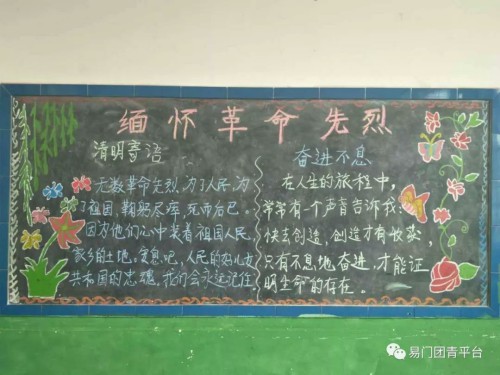 缅怀革命先烈
清明寄语
无数革命先烈,为了人民,为
了祖国,鞠躬尽瘁,死而后已。
因为他们心中装着祖国人民,
故乡的土地。安息吧,人民的好儿女
共和国的忠魂。我们会永远记住
奋进不息
在人生的旅程中,
常常有一个声音告诉我:
快去创造,创造才有收获,
只有不息地奋进,才能证
明生命的存在。
易门团青平台